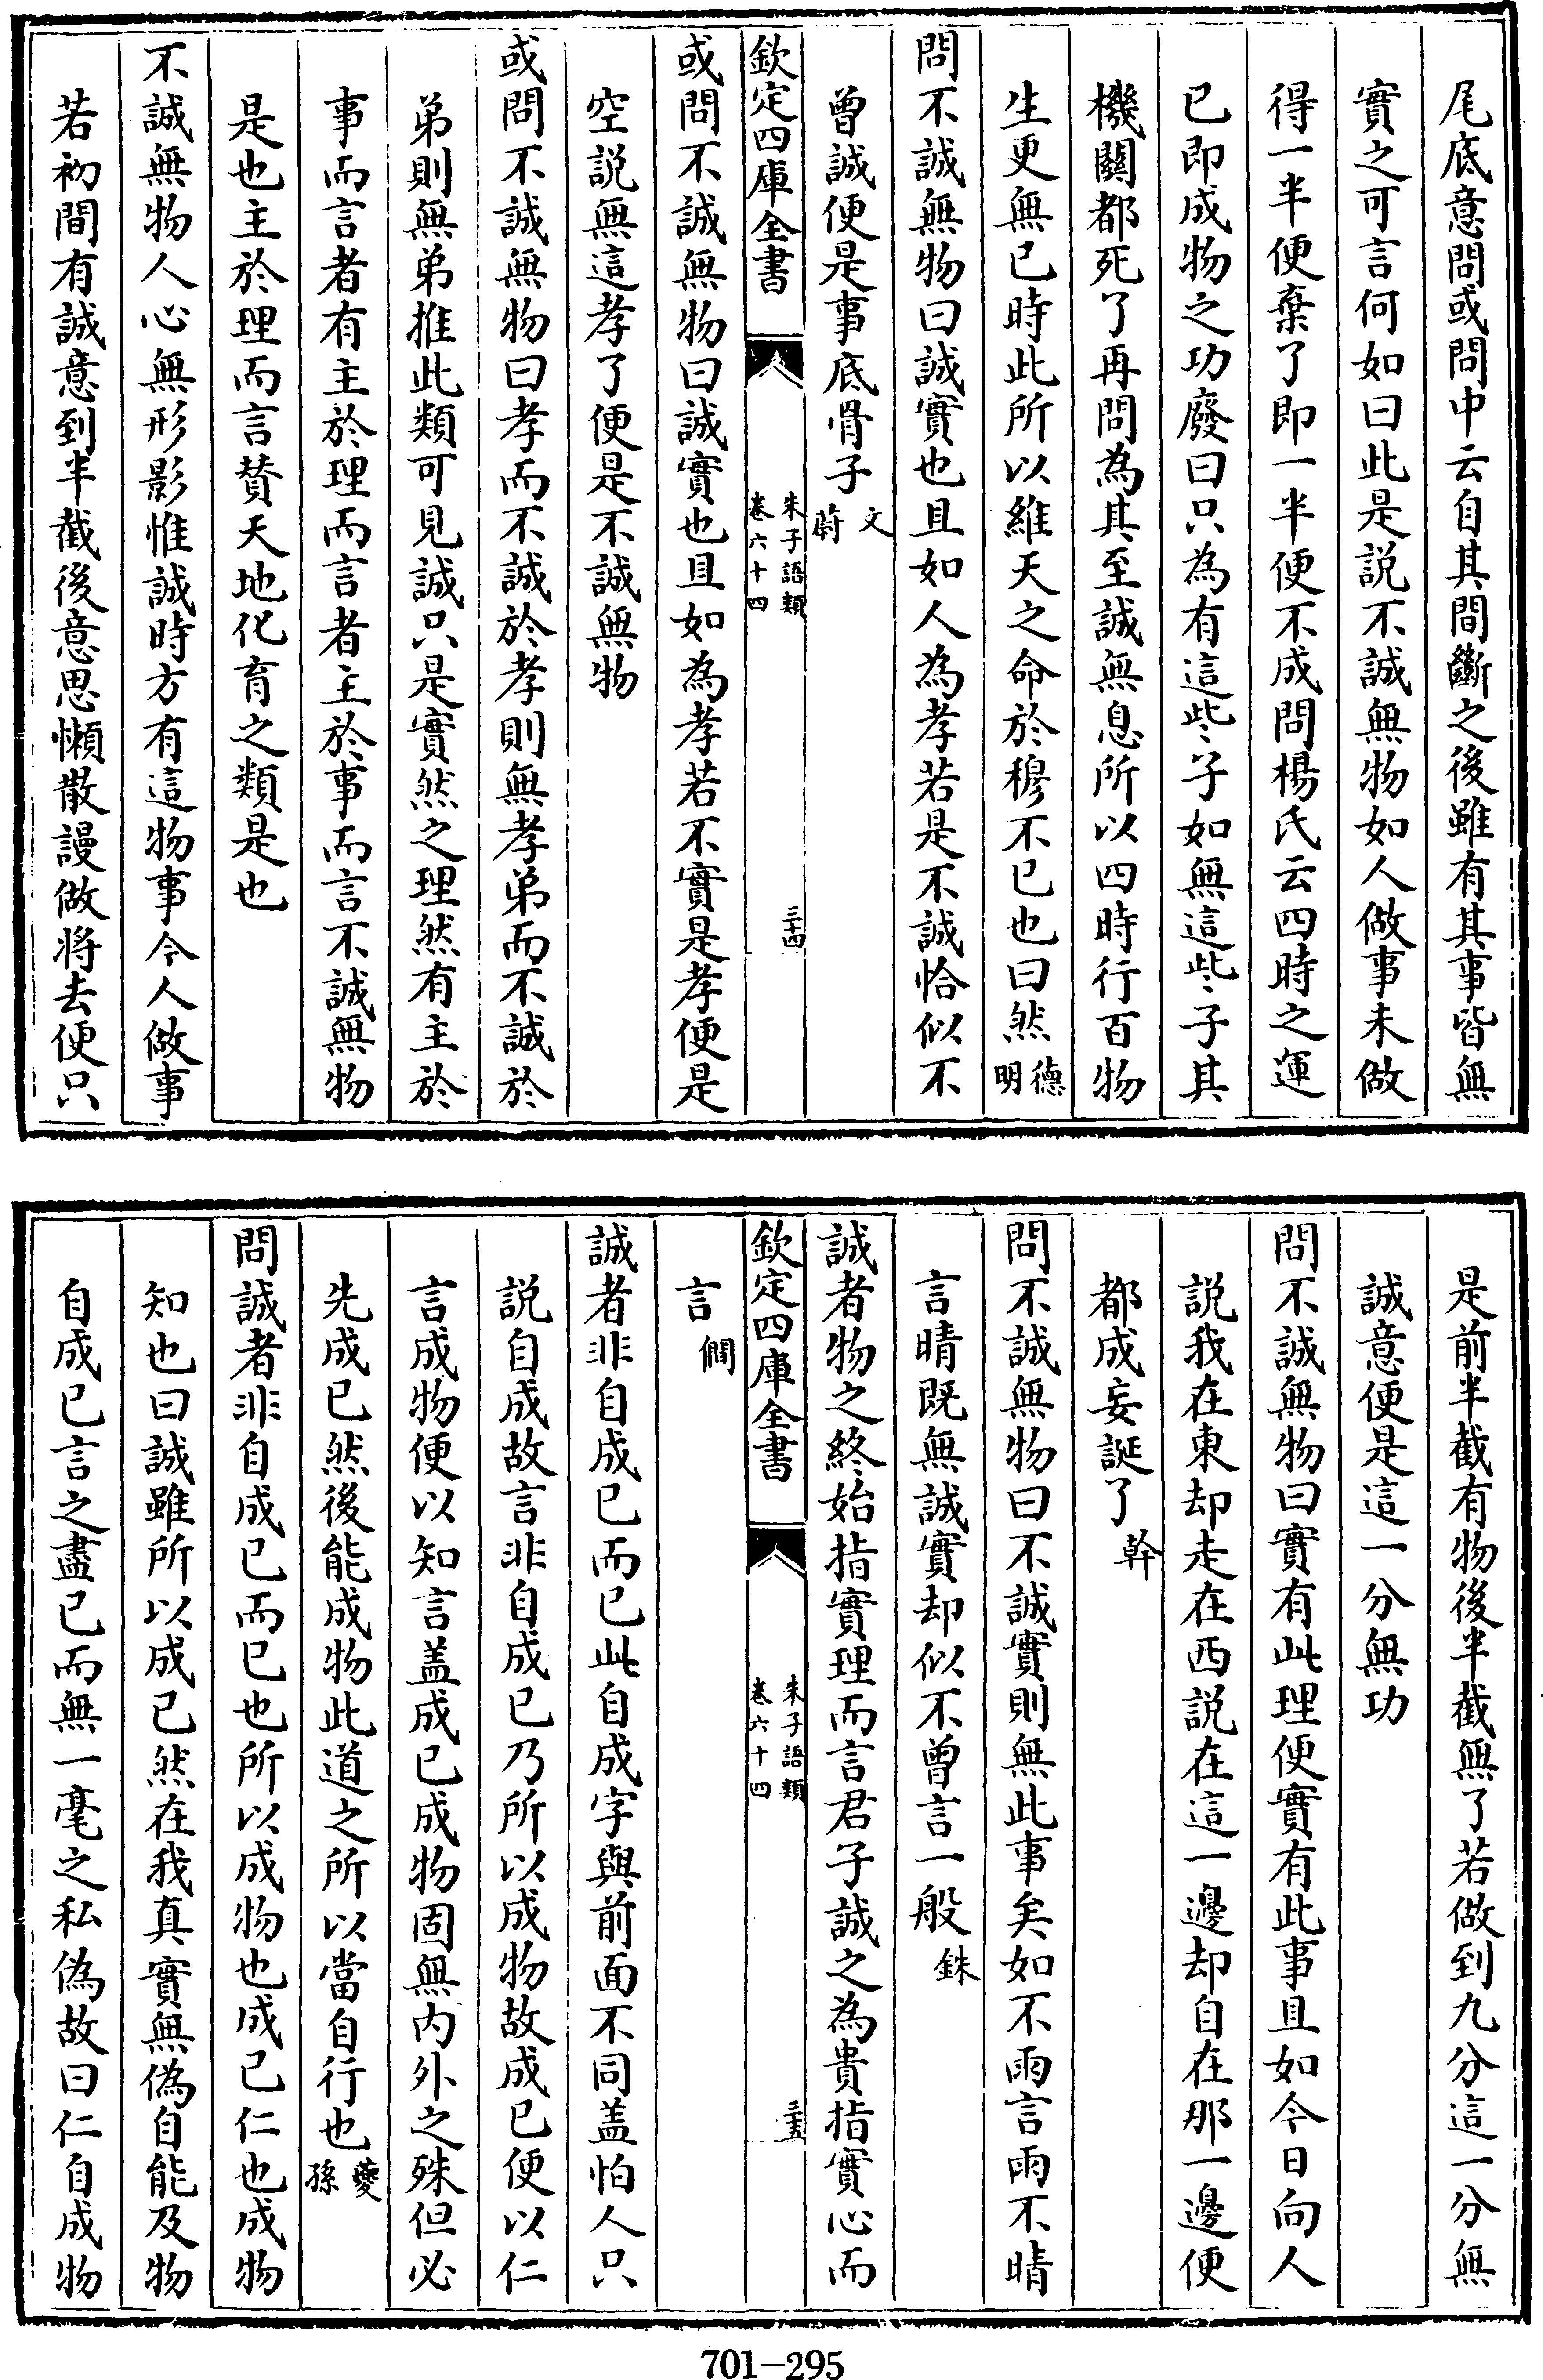 尾底意問或問中云自其間斷之後雖有其事皆無
實之可言何如曰此是説不誠無物如人做事未做
得一半便棄了即一半便不成問楊氏云四時之運
已即成物之功廢曰只為有這些子如無這些子其
機關都死了再問為其至誠無息所以四時行百物
生更無已時此所以維天之命於穆不已也曰然德明
問不誠無物曰誠實也且如人為孝若是不誠恰似不
曽誠便是事底骨子文蔚
欽定四庫全書
朱子語類
卷六十四
三十四
或問不誠無物曰誠實也且如為孝若不實是孝便是
空説無這孝了便是不誠無物
或問不誠無物曰孝而不誠於孝則無孝弟而不誠於
弟則無弟推此類可見誠只是實然之理然有主於
事而言者有主於理而言者主於事而言不誠無物
是也主於理而言賛天地化育之類是也
不誠無物人心無形影惟誠時方有這物事今人做事
若初間有誠意到半截後意思懶散謾做將去便只
是前半截有物後半截無了若做到九分這一分無
誠意便是這一分無功
問不誠無物曰實有此理便實有此事且如今日向人
説我在東却走在西説在這一邊却自在那一邊便
都成妄誕了榦
問不誠無物曰不誠實則無此事矣如不雨言雨不晴
言晴既無誠實却似不曾言一般銖
誠者物之終始指實理而言君子誠之為貴指實心而
欽定四庫全書
朱子語類
卷六十四
三十五
言僩
誠者非自成已而已此自成字與前面不同盖怕人只
説自成故言非自成已乃所以成物故成已便以仁
言成物便以知言盖成已成物固無内外之殊但必
先成已然後能成物此道之所以當自行也蘷孫
問誠者非自成已而已也所以成物也成已仁也成物
知也曰誠雖所以成已然在我真實無偽自能及物
自成已言之盡已而無一毫之私偽故曰仁自成物
701-295